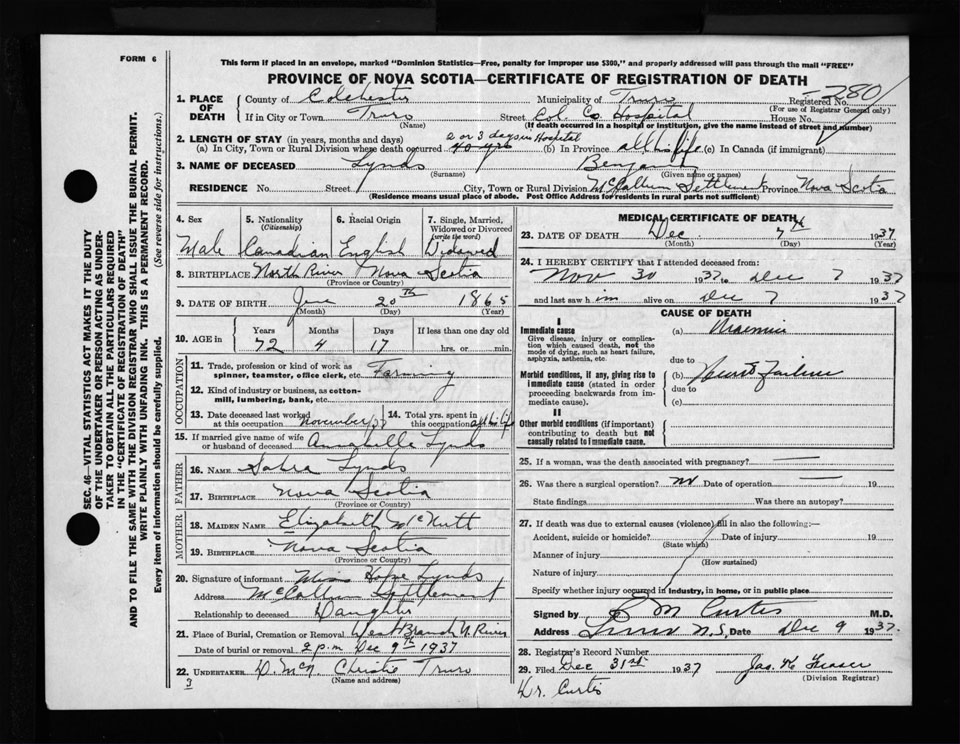 FORM 6
This form if placed in an envelope, marked "Dominion Statistics—Free, penalty for improper use $300," and properly addressed will pass through the mail "FREE"
PROVINCE OF NOVA SCOTIA—CERTIFICATE OF REGISTRATION OF DEATH
1. PLACE OF DEATH
County of Colchester Municipality of Truro Registered No. 280
(For use of Registrar General only)
If in City or Town Truro Street Col. Co. Hospital House No.
(Name) (If death occurred in a hospital or institution, give the name instead of street and number)
2. LENGTH OF STAY (in years, months and days) 2 or 3 days in Hospital
(a) In City, Town or Rural Division where death occurred 40 yrs (b) In Province all his life (c) In Canada (if immigrant)
3. NAME OF DECEASED Lynds Benjamin
(Surname) (Given name or names)
RESIDENCE No. Street City, Town or Rural Division McCallum Settlement Province Nova Scotia
(Residence means usual place of abode. Post Office Address for residents in rural parts not sufficient)
4. Sex Male
5. Nationality (Citizenship) Canadian
6. Racial Origin English
7. Single, Married, Widowed or Divorced (write the word) Widowed
8. BIRTHPLACE North River Nova Scotia
(Province or Country)
9. DATE OF BIRTH 20th 1865
(Month) (Day) (Year)
10. AGE in Years 72 Months 4 Days 17 If less than one day old hrs. or min.
OCCUPATION
11. Trade, profession or kind of work as spinner, teamster, office clerk, etc. Farming
12. Kind of industry or business, as cotton-mill, lumbering, bank, etc.
13. Date deceased last worked at this occupation November/37
14. Total yrs. spent in this occupation all his life
15. If married give name of wife or husband of deceased Annabelle Lynds
FATHER
16. NAME Lynds
17. BIRTHPLACE Nova Scotia
(Province or Country)
MOTHER
18. MAIDEN NAME Elizabeth McNutt
19. BIRTHPLACE Nova Scotia
(Province or Country)
20. Signature of informant Miss Hope Lynds
Address McCallum Settlement
Relationship to deceased Daughter
21. Place of Burial, Cremation or Removal West Branch N. River
Date of burial or removal 2 p.m Dec 9th 1937
22. UNDERTAKER D. McN. Christie Truro
(Name and address)
3
MEDICAL CERTIFICATE OF DEATH
23. DATE OF DEATH Dec. 7th 1937
(Month) (Day) (Year)
24. I HEREBY CERTIFY that I attended deceased from:
Nov 30 1937 to Dec 7 1937
and last saw him alive on Dec 7 1937
CAUSE OF DEATH
I
Immediate cause
Give disease, injury or complication which caused death, not the mode of dying, such as heart failure, asphyxia, asthenia, etc.
(a) Uraemia
due to
Morbid conditions, if any, giving rise to immediate cause (stated in order proceeding backwards from immediate cause).
(b) Heart Failure
due to
(c)
II
Other morbid conditions (if important) contributing to death but not causally related to immediate cause.
25. If a woman, was the death associated with pregnancy? —
26. Was there a surgical operation? no Date of operation — 19
State findings Was there an autopsy?
27. If death was due to external causes (violence) fill in also the following:—
Accident, suicide or homicide? Date of injury 19
(State which)
Manner of injury
(How sustained)
Nature of injury
Specify whether injury occurred in industry, in home, or in public place
Signed by E M Curtis M.D.
Address Truro N.S. Date Dec 9 1937.
28. Registrar's Record Number
29. Filed Dec 31st 1937 Jas. H. Fraser
(Division Registrar)
Dr. Curtis
SEC. 46—VITAL STATISTICS ACT MAKES IT THE DUTY
OF THE UNDERTAKER OR PERSON ACTING AS UNDER-
TAKER TO OBTAIN ALL THE PARTICULARS REQUIRED
IN THE "CERTIFICATE OF REGISTRATION OF DEATH"
AND TO FILE THE SAME WITH THE DIVISION REGISTRAR WHO SHALL ISSUE THE BURIAL PERMIT.
WRITE PLAINLY WITH UNFADING INK. THIS IS A PERMANENT RECORD.
Every item of information should be carefully supplied. (See reverse side for instructions.)